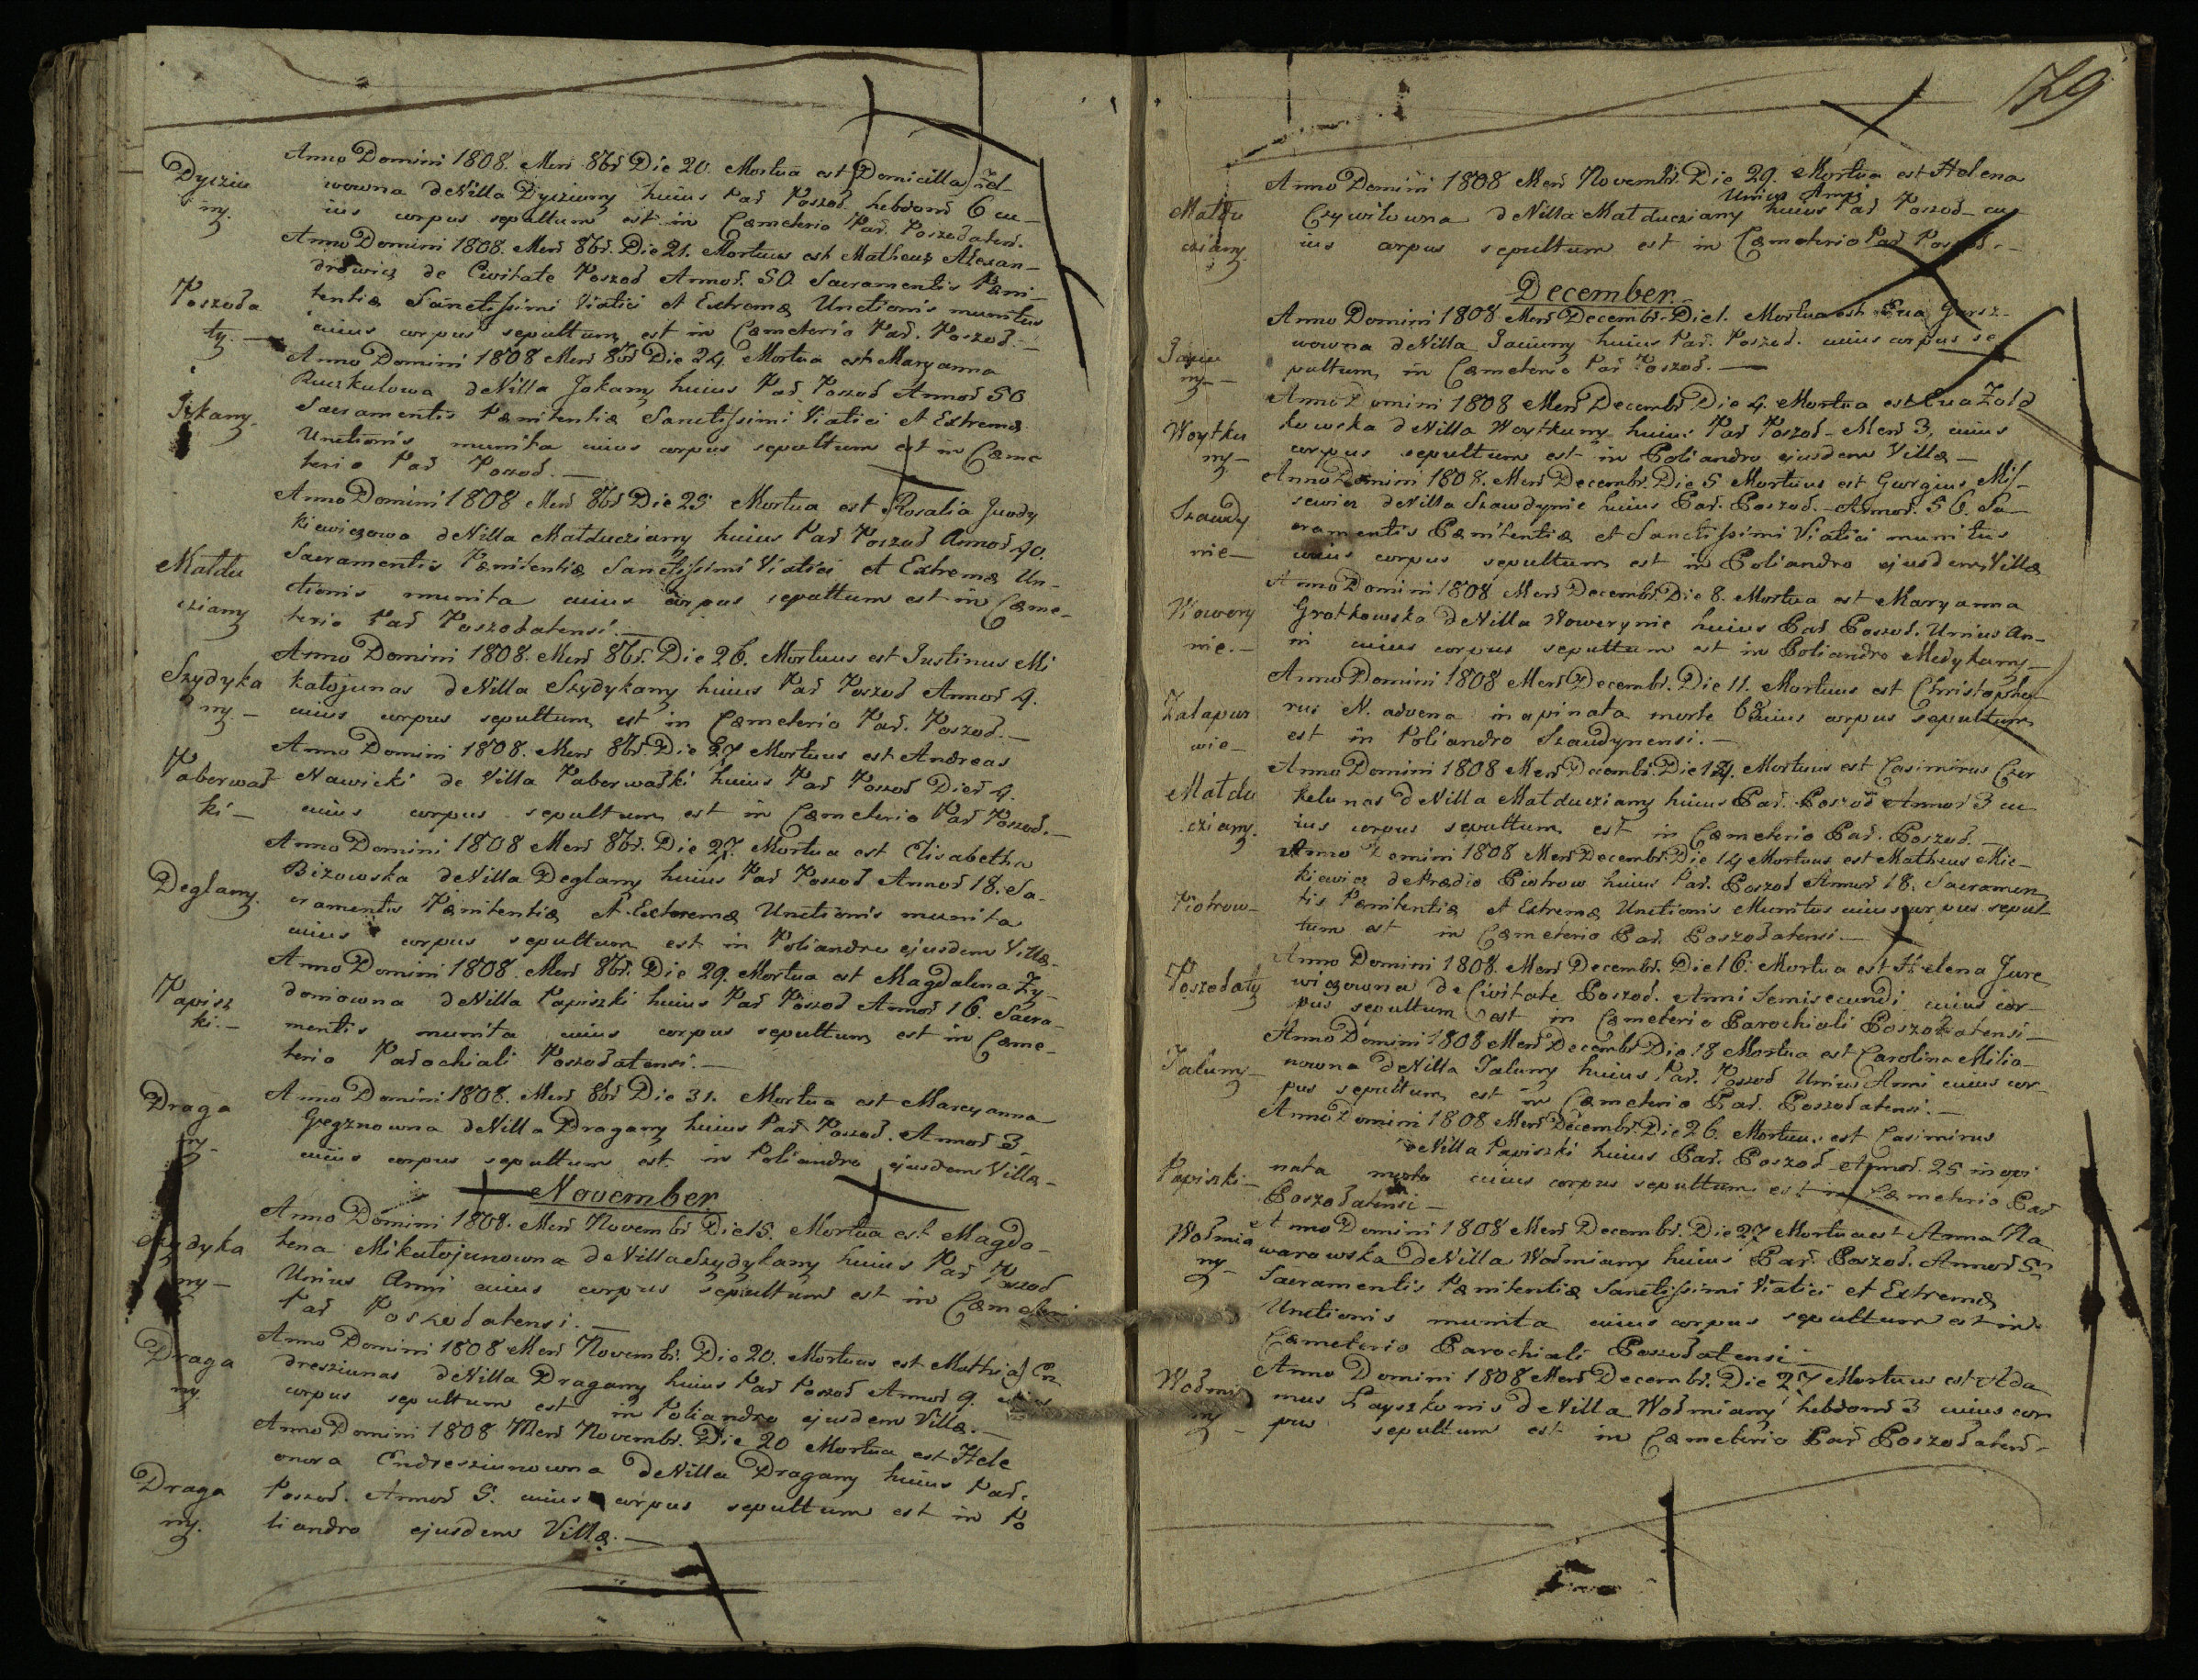 Dycziu
ny.
Anno Domini 1808. Mens 8br Die 20. Mortua est Domicilla
wowna de Villa Dycziuny huius Par Poszod. hebdom 6 cu-
ius corpus sepultum est in Cæmeterio Par. Poszodatens.
Poszoda
ty.
Anno Domini 1808. Mens 8br. Die 21. Mortuus est Matheus Alexan-
drowicz de Civitate Poszod Annor. 50 Sacramentis Pæni-
tentiæ Sanctissimi Viatici et Extremæ Unctionis munitus
cuius corpus sepultum est in Cæmeterio Par. Poszod.-
Jokany.
Anno Domini 1808 Mens 8br Die 24. Mortua est Maryanna
Ruczkulowa de Villa Jokany huius Par Poszod Annor 50
Sacramentis Pænitentiæ Sanctissimi Viatici et Extremæ
Unctionis munita cuius corpus sepultum est in Cæme
terio Par Poszod.-
Matdu
cziany
Anno Domini 1808 Mens 8br Die 25 Mortua est Rosalia Juody
kiewiczowa de Villa Matducziany huius Par Poszod Annor 40.
Sacramentis Pænitentiæ Sanctissimi Viatici et Extremæ Un-
ctionis munita cuius corpus sepultum est in Cæme-
terio Par Poszodatensi.-
Szydyka
ny.-
Anno Domini 1808. Mens 8br. Die 26. Mortuus est Justinus Mi
katojunas de Villa Szydykany huius Par Poszod Annor 4.
cuius corpus sepultum est in Cæmeterio Par. Poszod.-
Paberwał
ki-
Anno Domini 1808. Mens 8br. Die 27 Mortuus est Andreas
Nawicki de Villa Paberwałki huius Par Poszod Dier 4.
cuius corpus sepultum est in Cæmeterio Par Poszod.-
Deglany.
Anno Domini 1808 Mens 8br. Die 27. Mortua est Elisabetha
Bizowska de Villa Deglany huius Par Poszod Annor 18. Sa-
cramentis Pænitentiæ et Extremæ Unctionis munita
cuius corpus sepultum est in Poliandro ejusdem Villæ-
Papisz
ki.-
Anno Domini 1808. Mens 8br. Die 29. Mortua est Magdalena Zy-
doniowna de Villa Papiszki huius Par Poszod Annor 16. Sacra-
mentis munita cuius corpus sepultum est in Cæme-
terio Parochiali Poszodatensi.-
Draga
ny-
Anno Domini 1808. Mens 8br Die 31. Mortua est Maryanna
Gegznowna de Villa Dragany huius Par Poszod. Annor 3.
cuius corpus sepultum est in Poliandro ejusdem Villæ-
November
Szydyka
ny-
Anno Domini 1808. Mens Novembr Die 15. Mortua est Magda-
lena Mikatojunowna de Villa Szydykany huius Par Poszod
Unius Anni cuius corpus sepultum est in Cæmeteri
Par Poszodatensi.-
Draga
ny
Anno Domini 1808 Mens Novembr. Die 20. Mortuus est Mathias En
dresziunas de Villa Dragany huius Par Poszod Annor 9. cuius
corpus sepultum est in Poliandro ejusdem Villæ.-
Draga
ny.
Anno Domini 1808 Mens Novembr. Die 20 Mortua est Hele
onora Endresziunowna de Villa Dragany huius Par.
Poszod. Annor 5. cuius corpus sepultum est in Po
liandro ejusdem Villæ.-
79
Matdu
cziany.
Anno Domini 1808 Mens Novembr. Die 29. Mortua est Helena
Unius Anni
Czywilowna de Villa Matducziany huius Par Poszod- cu-
ius corpus sepultum est in Cæmeterio Par Poszod.-
December.
Jaciu
ny-
Anno Domini 1808 Mens Decembr. Die 1. Mortua est Eva Gursz-
wowna de Villa Jaciuny huius Par. Poszod. cuius corpus se
pultum in Cæmeterio Par Poszod.-
Woytku
ny-
Anno Domini 1808 Mens Decembr Die 4. Mortua est Eva Zołd
kowska de Villa Woytkuny huius Par Poszod- Mens 3, cuius
corpus sepultum est in Poliandro ejusdem Villæ-
Szaudy
nie-
Anno Domini 1808. Mens Decembr. Die 5 Mortuus est Gurgius Mis-
sewicz de Villa Szaudynie huius Par. Poszod.- Annor. 56. Sa-
cramentis Pænitentiæ et Sanctissimi Viatici munitus
cuius corpus sepultum est in Poliandro ejusdem Villæ
Wowery
nie.-
Anno Domini 1808 Mens Decembr. Die 8. Mortua est Maryanna
Grotkowska de Villa Wowerynie huius Par Poszod. Unius An-
ni cuius corpus sepultum est in Poliandro Medykany-
Zatapur
wie-
Anno Domini 1808 Mens Decembr. Die 11. Mortuus est Christopho-
rus N. advena inopinata morte cuius corpus sepultum
est in Poliandro Szaudynensi.-
Matdu
cziany.
Anno Domini 1808 Mens Decembr. Die 14. Mortuus est Casimirus Czer
kelunas de Villa Matducziany huius Par. Poszod Annor 3 cu
ius corpus sepultum est in Cæmeterio Par. Poszod.-
Piotrow-
Anno Domini 1808 Mens Decembr. Die 14 Mortuus est Matheus Mic-
kiewicz de Prædio Piotrow huius Par. Poszod Annor 18. Sacramen
tis Pænitentiæ et Extremæ Unctionis Munitus cuius corpus sepul
tum est in Cæmeterio Par. Poszodatensi.-
Poszodaty
Anno Domini 1808. Mens Decembr. Die 16. Mortua est Helena Jure
wiczowna de Civitate Poszod. Anni Semisecundi cuius cor-
pus sepultum est in Cæmeterio Parochiali Poszodatensi-
Jaluny-
Anno Domini 1808 Mens Decembr Die 18 Mortua est Carolina Milia-
nowna de Villa Jaluny huius Par. Poszod Unius Anni cuius cor-
pus sepultum est in Cæmeterio Par. Poszodatensi.-
Papiszki-
Anno Domini 1808 Mens Decembr. Die 26. Mortuus est Casimirus
de Villa Papiszki huius Par. Poszod- Annor. 25 inopi
nata morte cuius corpus sepultum est in Cæmeterio Par
Poszodatensi-
Wodmia
ny-
Anno Domini 1808 Mens Decembr. Die 27 Mortua est Anna Na
warawska de Villa Wodmiany huius Par. Poszod. Annor 53
Sacramentis Pænitentiæ Sanctissimi Viatici et Extremæ
Unctionis munita cuius corpus sepultum est in
Cæmeterio Parochiali Poszodatensi-
Wodmia
ny-
Anno Domini 1808 Mens Decembr. Die 27 Mortuus est Ada
mus Łayszkonis de Villa Wodmiany hebdom 3 cuius cor
pus sepultum est in Cæmeterio Par Poszodatens-